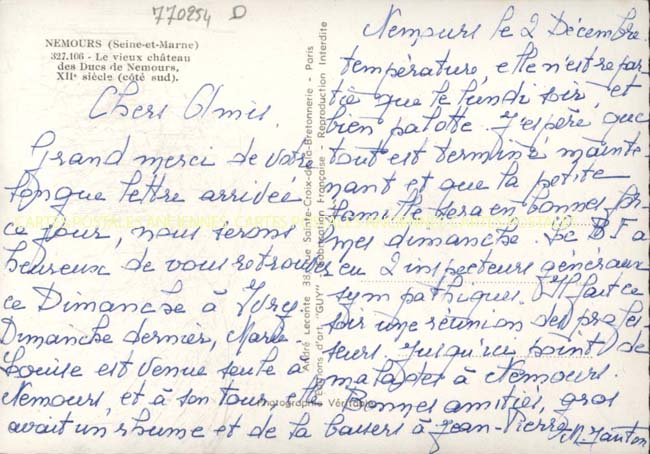 770254 D
NEMOURS (Seine-et-Marne)
327.106 - Le vieux château
des Ducs de Nemours,
XIIe siècle (côté sud).
Chers Amis,
Grand merci de votre
longue lettre arrivée
ce jour, nous serons
heureux de vous retrouver
ce Dimanche à Ivry
Dimanche dernier, Marie-
Louise est venue seule à
Nemours, et à son tour, elle
avait un rhume et de la
Nemours le 2 Décembre
température, elle n'est repar-
tie que le lundi soir, et
bien palote. J'espère que
tout est terminé mainte-
nant et que la petite
famille sera en bonnes for-
mes dimanche. Le B.F a
eu 2 inspecteurs généraux
sympathiques. Il fait ce
soir une réunion des profes-
seurs. Jusqu'ici point de
malades à Nemours.
Bonnes amitiés, gros
baisers à Jean-Pierre
André Leconte 38, rue Sainte-Croix-de-la-Bretonnerie - Paris
Editions d'art "GUY" - Fabrication Française - Reproduction Interdite
Photographie Véritable
CARTES POSTALES ANCIENNES